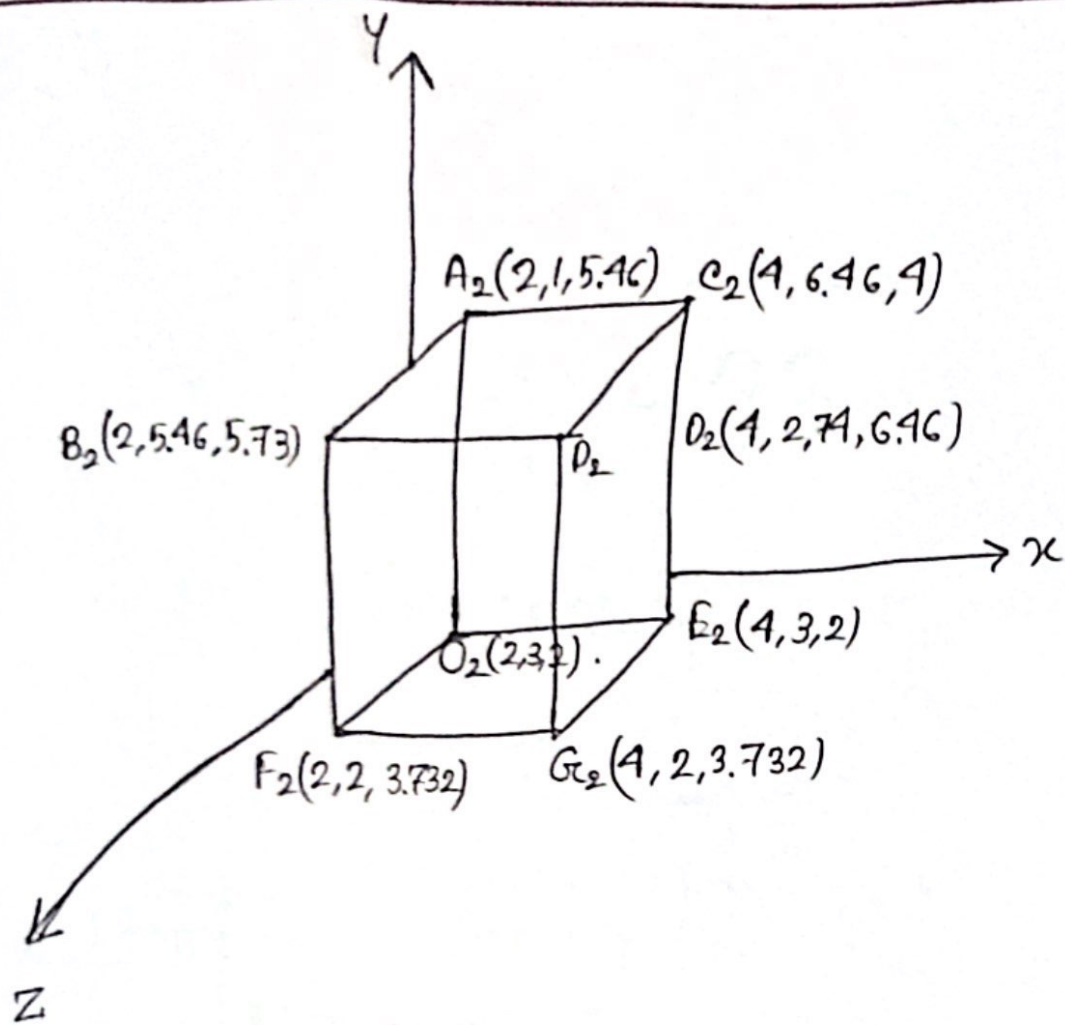 Y
A₂(2,1,5.46) C₂(4,6.46,4)
B₂(2,5.46,5.73) D₂ D₂(4,2,74,6.46)
x
E₂(4,3,2)
O₂(2,3,2).
F₂(2,2,3.732) G₂(4,2,3.732)
Z